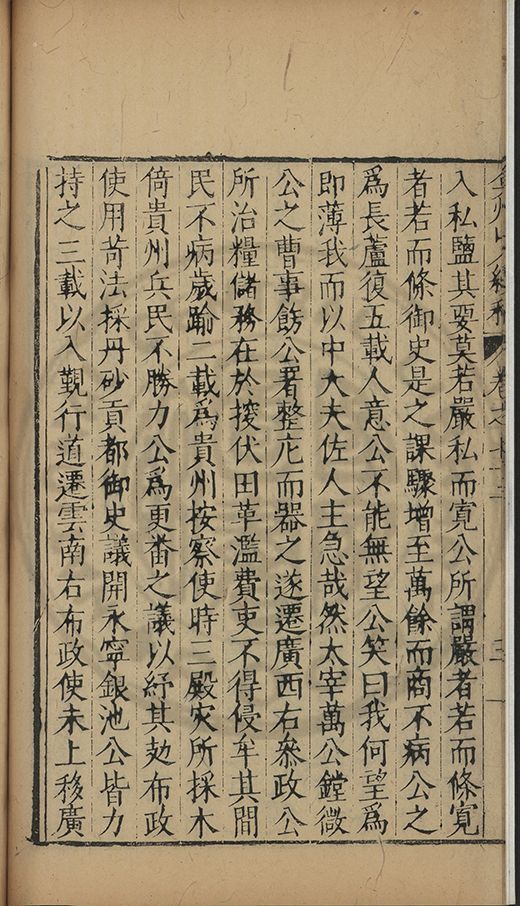 弇州山人續稿 卷之 十三 三
入私鹽其要莫若嚴私而寬公所謂嚴者若而條寬
者若而條御史是之課驟增至萬餘而商不病公之
爲長蘆復五載人意公不能無望公笑曰我何望爲
即薄我而以中大夫佐人主急哉然太宰萬公鏜微
公之曹事飭公署整庀而器之遂遷廣西右叅政公
所治糧儲務在於搜伏田革濫費吏不得侵牟其間
民不病歲踰二載爲貴州按察使時三殿灾所採木
倚貴州兵民不勝力公爲更畨之議以紓其勊布政
使用苛法採丹砂貢都御史議開永寧銀池公皆力
持之三載以入覲行道遷雲南右布政使未上移廣